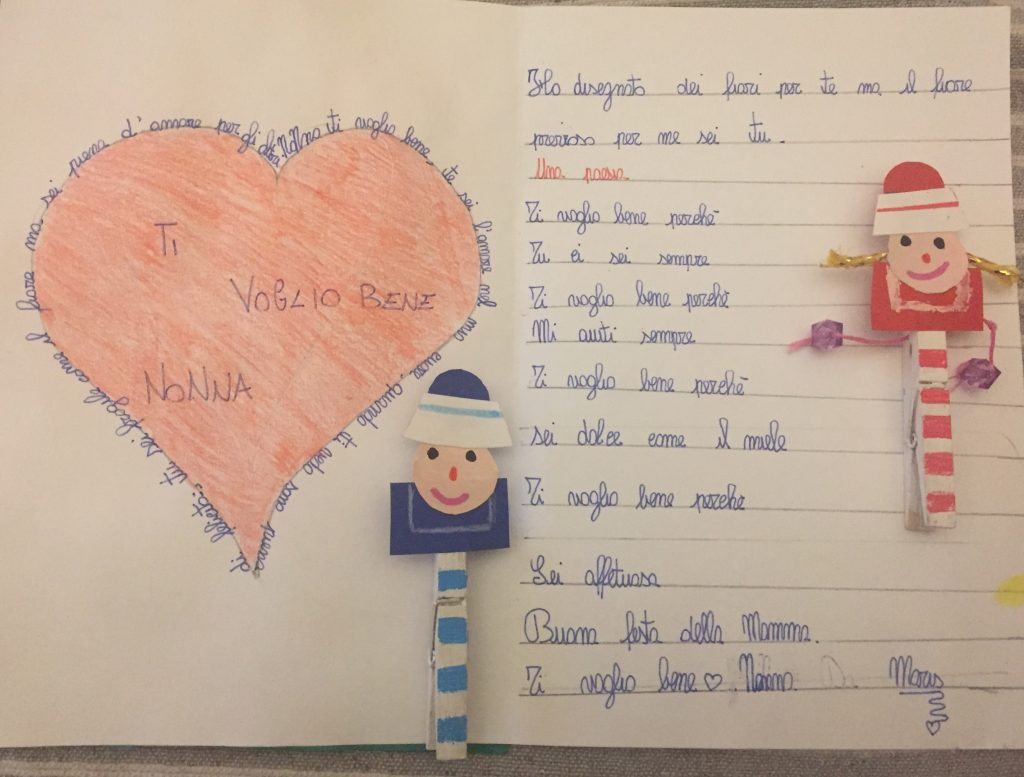 NoNna ti voglio bene te sei l'amore nel mio cuore quando ti vedo sono piena di tu sei fragile come il fiore ma sei piena d'amore per gli altri
TI
VOGLIO BENE
NoNNA
Ho disegnato dei fiori per te ma il fiore
prezioso per me sei tu.
Una poesia.
Ti voglio bene perché
Tu ci sei sempre
Ti voglio bene perché
Mi aiuti sempre
Ti voglio bene perché
sei dolce come il miele
Ti voglio bene perché
Sei affettuosa
Buona festa della Mamma.
Ti voglio bene ♡. Nonna. Da